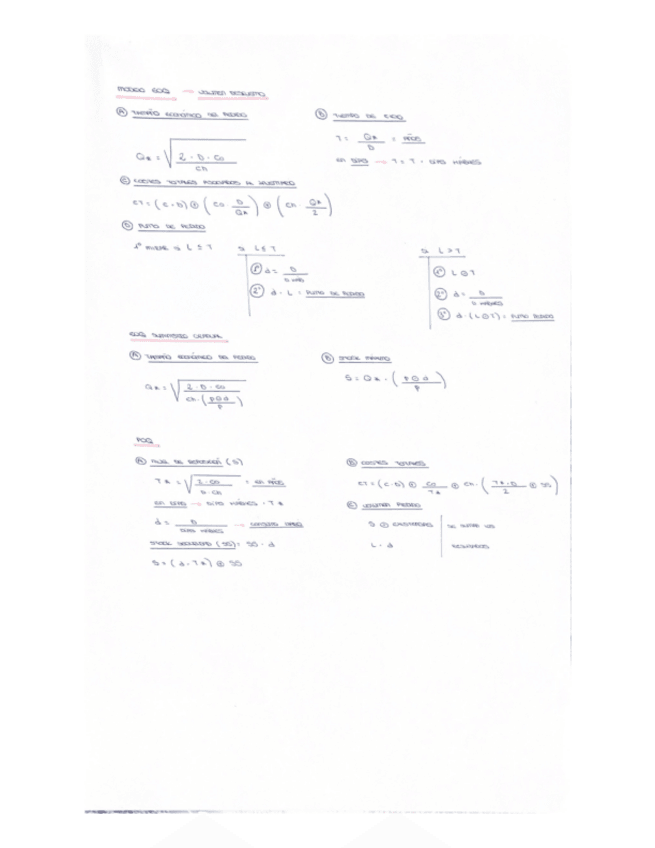 MODELO EOQ → VOLUMEN DESCUENTO
Ⓐ TAMAÑO ECONÓMICO DEL PEDIDO
Q* = √(2 · D · Co / Ch)
Ⓑ TIEMPO DE CICLO
T = Q* / D = AÑOS
EN DÍAS → T = T · DÍAS HÁBILES
Ⓒ COSTES TOTALES ASOCIADOS AL INVENTARIO
CT = (C · D) ⊕ (Co · D / Q*) ⊕ (Ch · Q* / 2)
Ⓓ PUNTO DE PEDIDO
1º MIRAR SI L ≤ T
SI L ≤ T
①º d = D / D HÁB
②º d · L = PUNTO DE PEDIDO
SI L > T
①º L ⊖ T
②º d = D / D HÁBILES
③º d · (L ⊖ T) = PUNTO PEDIDO
EOQ SUMINISTRO GRADUAL
Ⓐ TAMAÑO ECONÓMICO DEL PEDIDO
Q* = √(2 · D · Co / Ch · (p ⊖ d / p))
Ⓑ STOCK MÁXIMO
S = Q* · (p ⊖ d / p)
POQ
Ⓐ NIVEL DE REPOSICIÓN (S)
T* = √(2 · Co / D · Ch) = EN AÑOS
EN DÍAS → DÍAS HÁBILES · T*
d = D / DÍAS HÁBILES →
STOCK SEGURIDAD (SS) = SS · d
S = (d · T*) ⊕ SS
Ⓑ COSTES TOTALES
CT = (C · D) ⊕ Co / T* ⊕ Ch · (T* · D / 2 ⊕ SS)
Ⓒ VOLUMEN PEDIDO
S ⊖
L · d